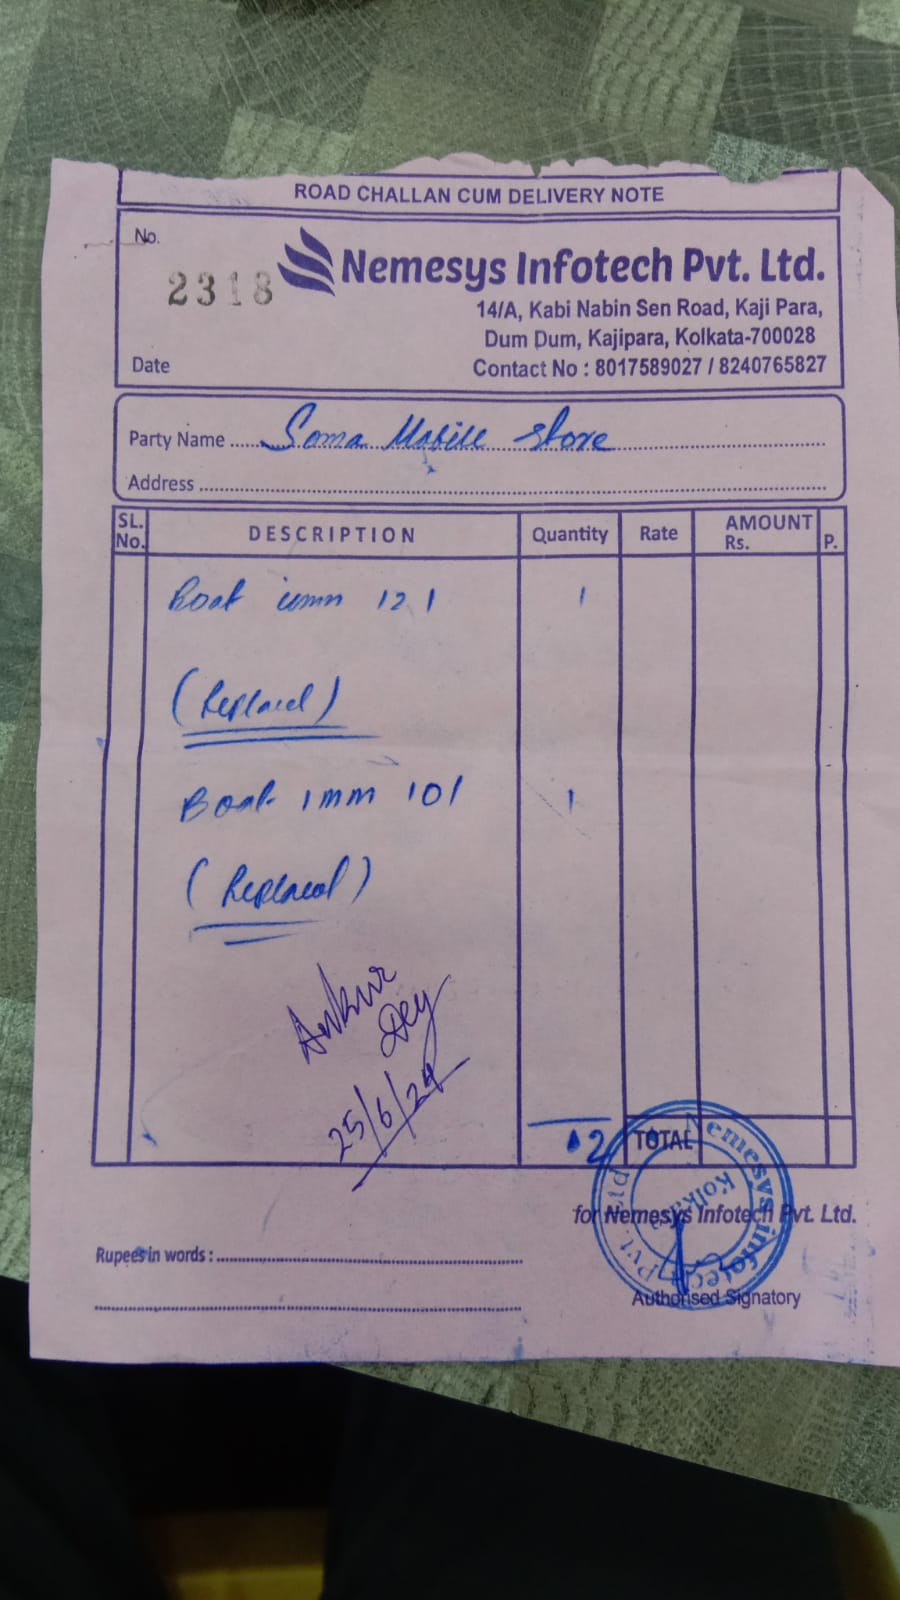 ROAD CHALLAN CUM DELIVERY NOTE
No.
2318
Nemesys Infotech Pvt. Ltd.
14/A, Kabi Nabin Sen Road, Kaji Para,
Dum Dum, Kajipara, Kolkata-700028
Date
Contact No : 8017589027 / 8240765827
Party Name Soma Mobile Store
Address
SL. No. DESCRIPTION Quantity Rate AMOUNT Rs. P.
Boat imm 121 1
(Replaced)
Boat 1mm 101 1
(Replaced)
Ankur
Dey
25/6/24
02 TOTAL
for Nemesys Infotech Pvt. Ltd.
Nemesys Infotech Pvt. Ltd.
Kolkata
Rupees in words :
Authorised Signatory